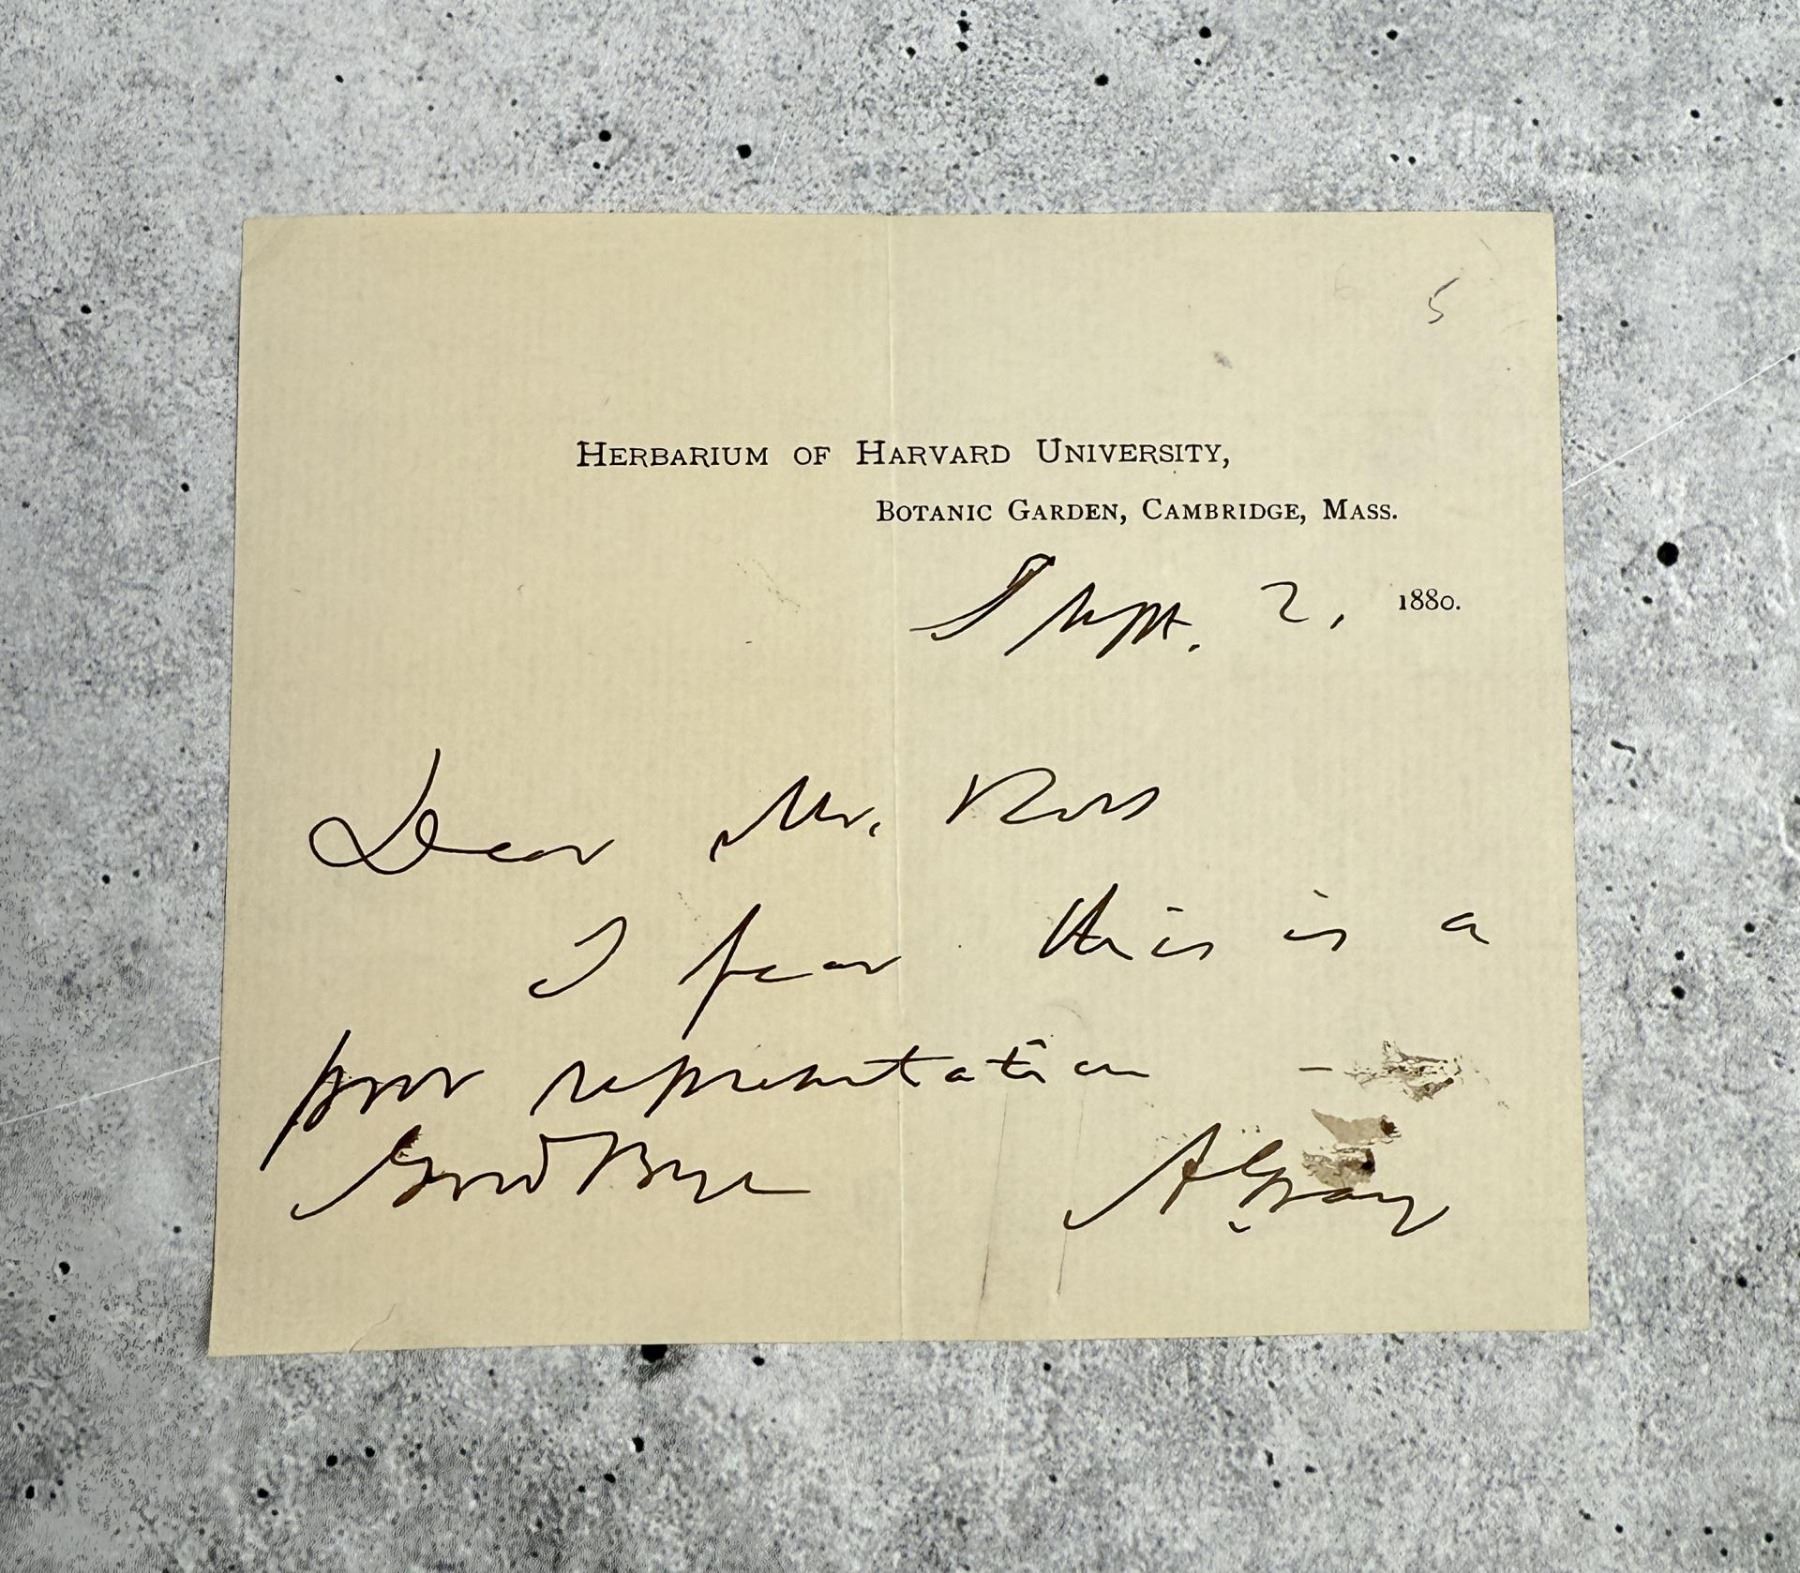 5
HERBARIUM OF HARVARD UNIVERSITY,
BOTANIC GARDEN, CAMBRIDGE, MASS.
Sept. 2, 1880.
Dear Mr. Ross
I fear this is a
poor representation -
Good Bye A Gray